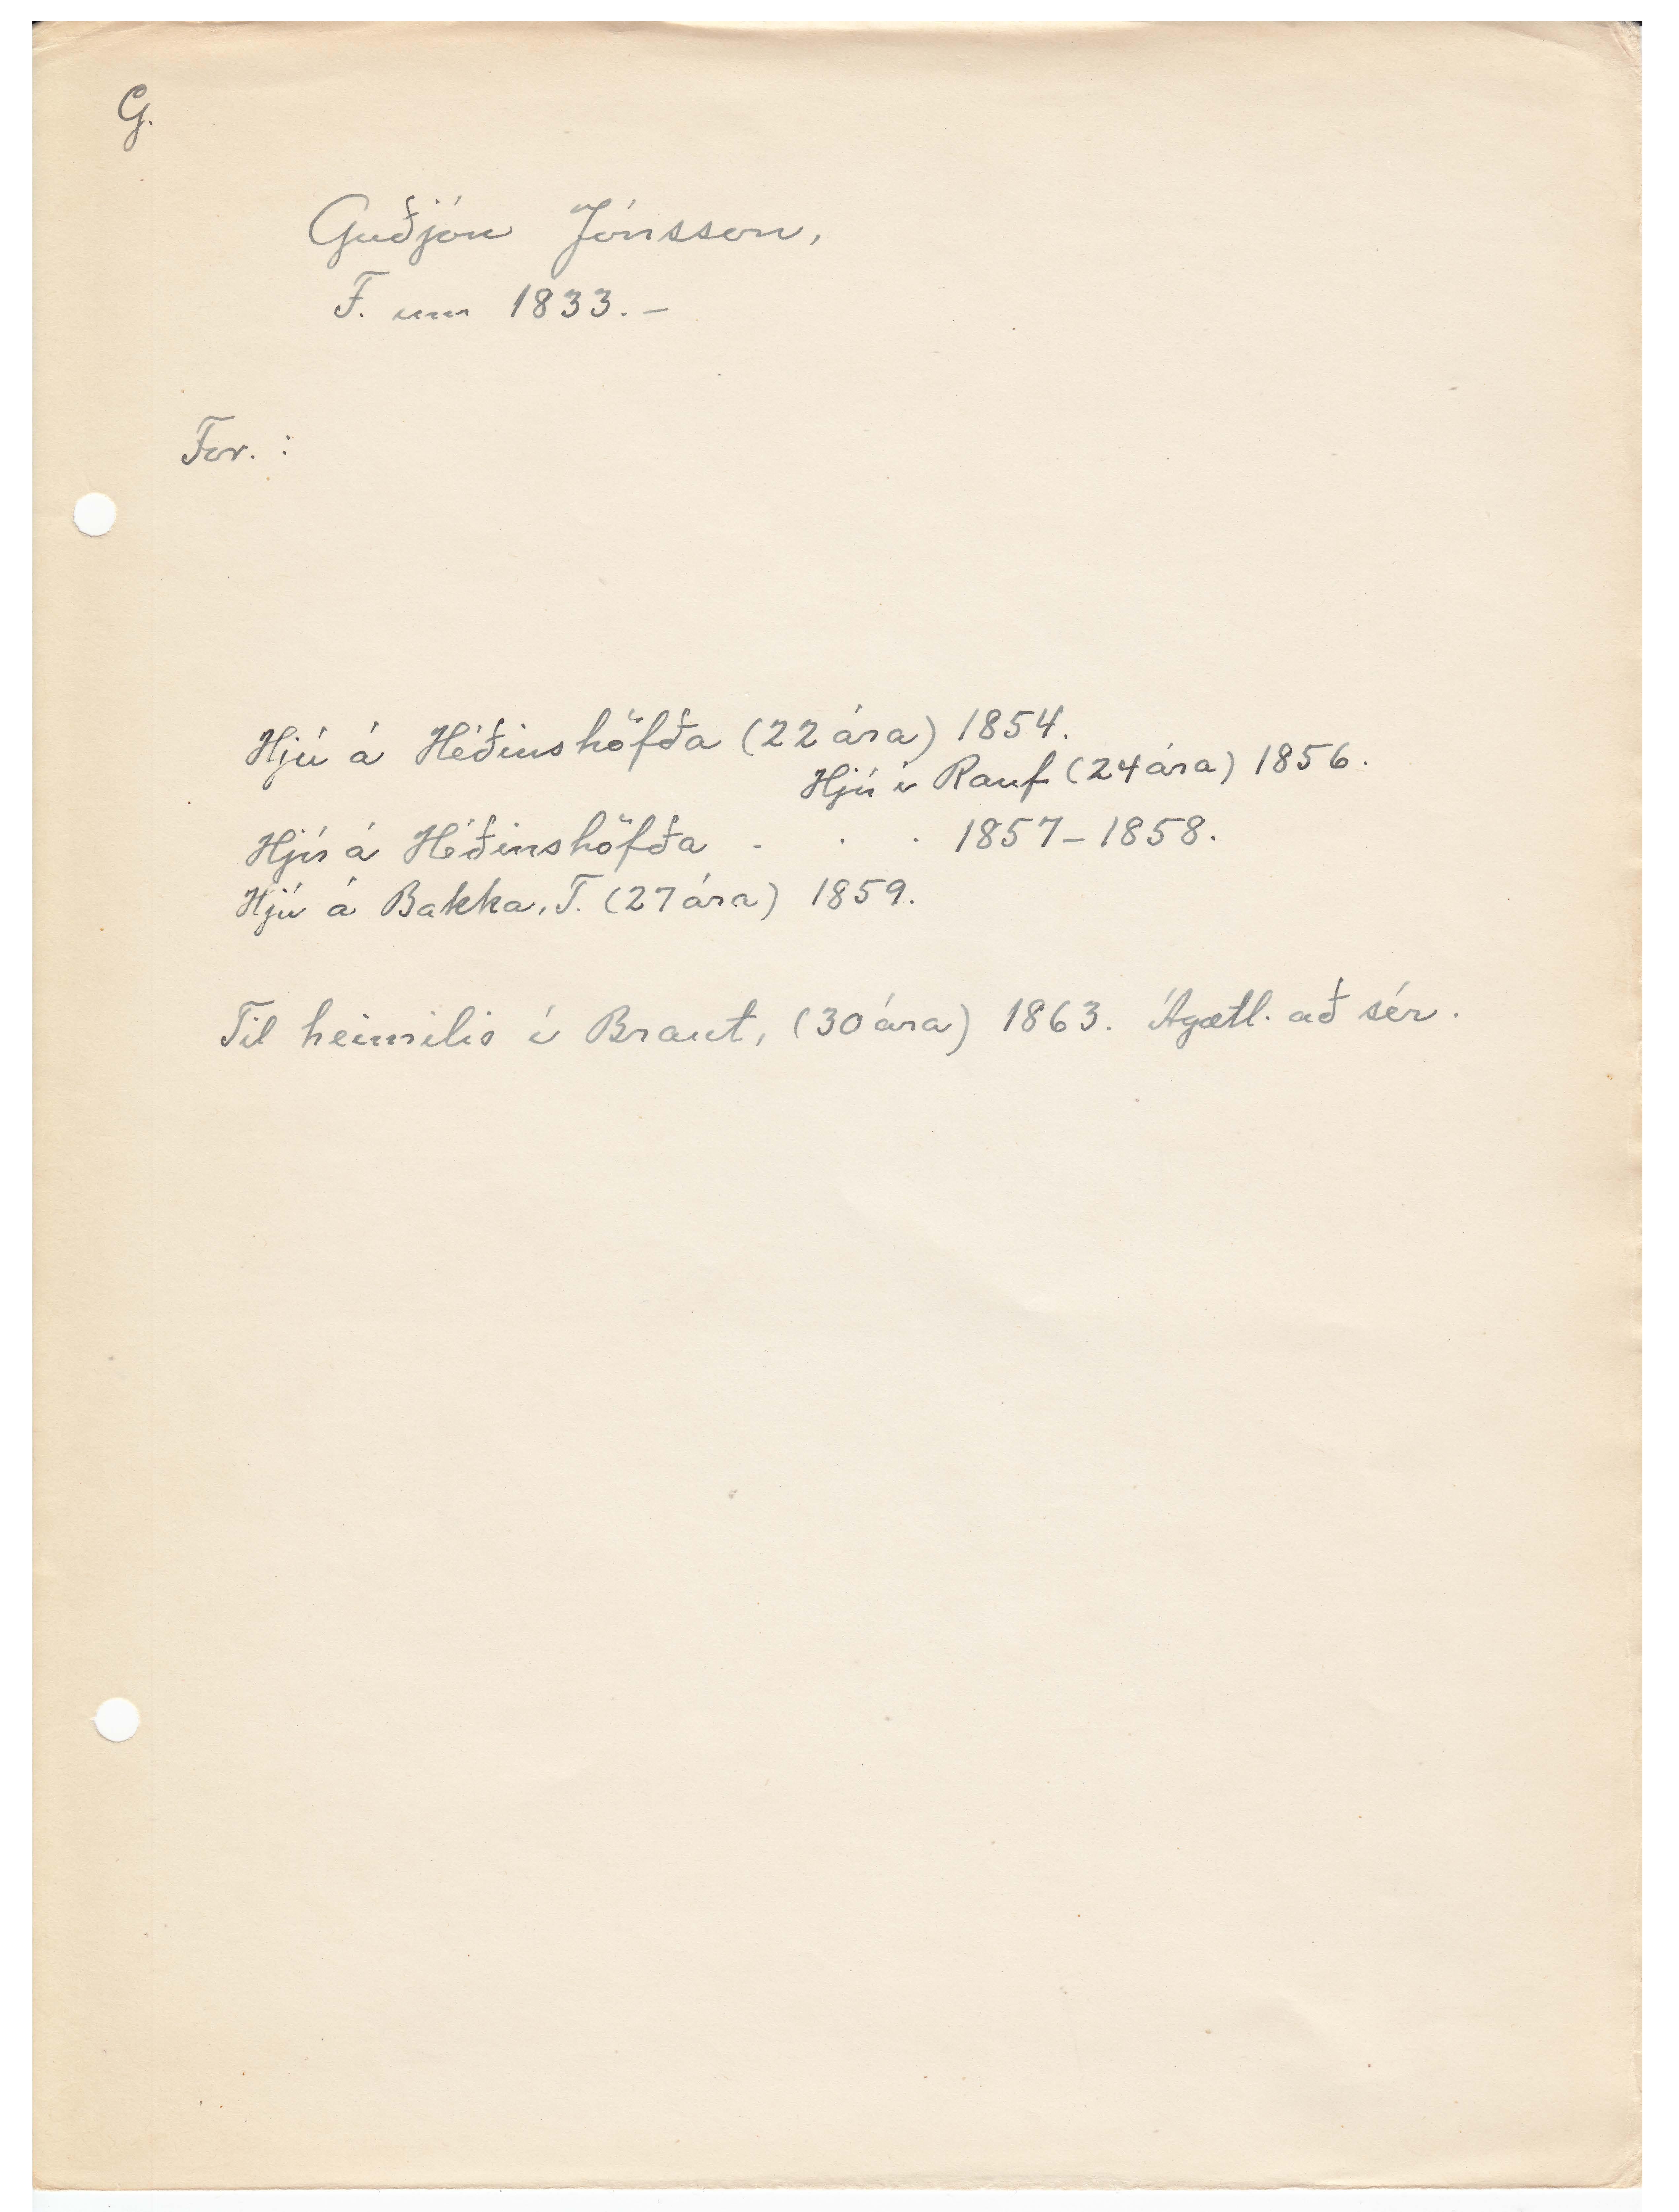 G.
Guðjón Jónsson,
F. um 1833. –
For. :
Hjú á Héðinshöfða (22 ára) 1854.
Hjú í Rauf (24 ára) 1856.
Hjú á Héðinshöfða . . . 1857 – 1858.
Hjú á Bakka, T. (27 ára) 1859.
Til heimilis í Braut, (30 ára) 1863. Ágætl. að sér.